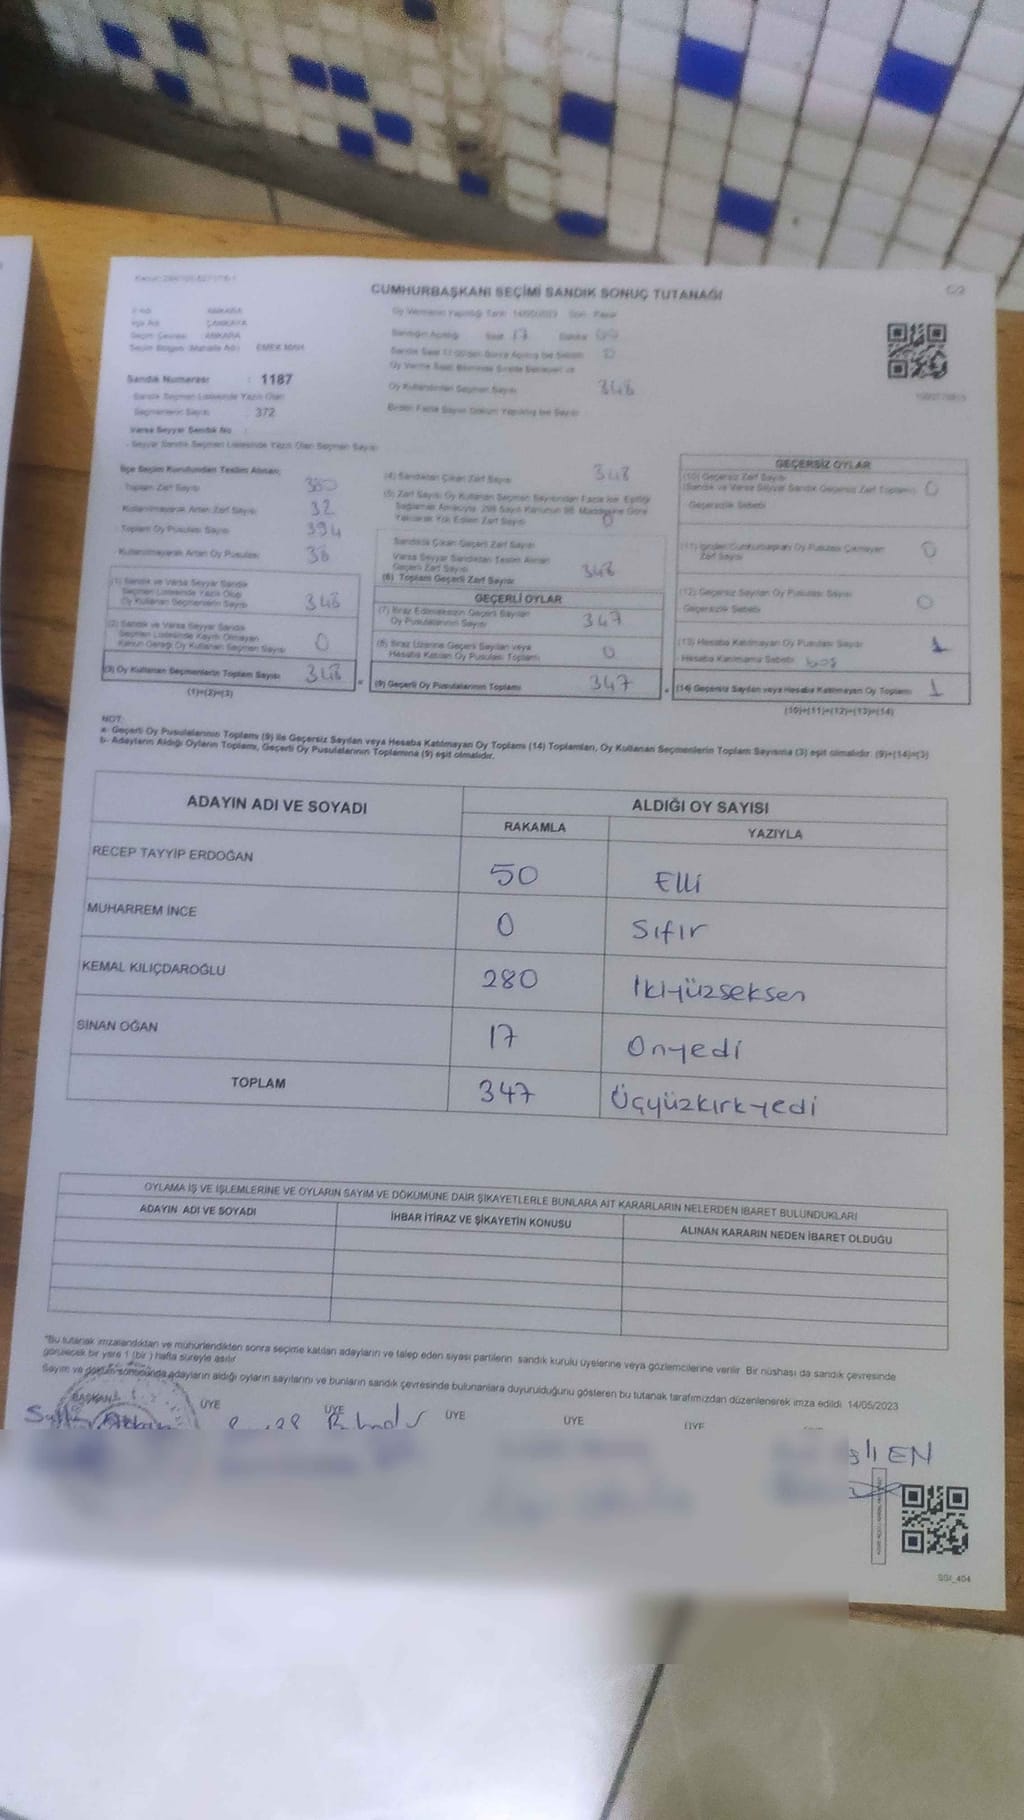 CUMHURBAŞKANI SEÇİMİ SANDIK SONUÇ TUTANAĞI
İlçe Adı ÇANKAYA
Seçim Çevresi ANKARA
EMEK MAH.
Sandık Numarası : 1187
Sandık Seçmen Listesinde Yazılı Olan
Seçmenlerin Sayısı : 372
Varsa Seyyar Sandık No :
- Seyyar Sandık Seçmen Listesinde Yazılı Olan Seçmen Sayısı
Sandığın Açıldığı Saat 17
Oy Kullandırılan Seçmen Sayısı 348
İlçe Seçim Kurulundan Teslim Alınan;
Toplam Zarf Sayısı 380
Kullanılmayarak Artan Zarf Sayısı 32
Toplam Oy Pusulası Sayısı
Kullanılmayarak Artan Oy Pusulası
(1) Sandık ve Varsa Seyyar Sandık
Seçmen Listesinde Yazılı Olup
Oy Kullanan Seçmenlerin Sayısı 348
(2) Sandık ve Varsa Seyyar Sandık
Seçmen Listesinde Kayıtlı Olmayan
Kanun Gereği Oy Kullanan Seçmen Sayısı 0
(3) Oy Kullanan Seçmenlerin Toplam Sayısı 348
(1)+(2)=(3)
(4) Sandıktan Çıkan Zarf Sayısı 348
(5) Zarf Sayısı Oy Kullanan Seçmen Sayısından Fazla ise, Eşitliği
Sağlamak Amacıyla, 298 Sayılı Kanunun 98. Maddesine Göre
Yakılarak Yok Edilen Zarf Sayısı 0
Sandıkta Çıkan Geçerli Zarf Sayısı
Varsa Seyyar Sandıktan Teslim Alınan
Geçerli Zarf Sayısı
(6) Toplam Geçerli Zarf Sayısı 348
GEÇERLİ OYLAR
(7) İtiraz Edilmeksizin Geçerli Sayılan
Oy Pusulalarının Sayısı 347
(8) İtiraz Üzerine Geçerli Sayılan veya
Hesaba Katılan Oy Pusulası Toplamı 0
(9) Geçerli Oy Pusulalarının Toplamı 347
GEÇERSİZ OYLAR
(10) Geçersiz Zarf Sayısı
(Sandık ve Varsa Seyyar Sandık Geçersiz Zarf Toplamı) 0
Geçersizlik Sebebi
(11) İçinden Cumhurbaşkanı Oy Pusulası Çıkmayan
Zarf Sayısı 0
(12) Geçersiz Sayılan Oy Pusulası Sayısı 0
Geçersizlik Sebebi
(13) Hesaba Katılmayan Oy Pusulası Sayısı 1
Hesaba Katılmama Sebebi boş
(14) Geçersiz Sayılan veya Hesaba Katılmayan Oy Toplamı 1
(10)+(11)+(12)+(13)=(14)
NOT:
a- Geçerli Oy Pusulalarının Toplamı (9) ile Geçersiz Sayılan veya Hesaba Katılmayan Oy Toplamı (14) Toplamları, Oy Kullanan Seçmenlerin Toplam Sayısına (3) eşit olmalıdır. (9)+(14)=(3)
b- Adayların Aldığı Oyların Toplamı, Geçerli Oy Pusulalarının Toplamına (9) eşit olmalıdır.
ADAYIN ADI VE SOYADI
ALDIĞI OY SAYISI
RAKAMLA YAZIYLA
RECEP TAYYİP ERDOĞAN 50 Elli
MUHARREM İNCE 0 Sıfır
KEMAL KILIÇDAROĞLU 280 İkiyüzseksen
SİNAN OĞAN 17 Onyedi
TOPLAM 347 Üçyüzkırkyedi
OYLAMA İŞ VE İŞLEMLERİNE VE OYLARIN SAYIM VE DÖKÜMÜNE DAİR ŞİKAYETLERLE BUNLARA AİT KARARLARIN NELERDEN İBARET BULUNDUKLARI
ADAYIN ADI VE SOYADI İHBAR İTİRAZ VE ŞİKAYETİN KONUSU ALINAN KARARIN NEDEN İBARET OLDUĞU
*Bu tutanak imzalandıktan ve mühürlendikten sonra seçime katılan adayların ve talep eden siyasi partilerin sandık kurulu üyelerine veya gözlemcilerine verilir. Bir nüshası da sandık çevresinde
görülecek bir yere 1 (bir) hafta süreyle asılır.
Sayım ve döküm sonucunda adayların aldığı oyların sayılarını ve bunların sandık çevresinde bulunanlara duyurulduğunu gösteren bu tutanak tarafımızdan düzenlenerek imza edildi. 14/05/2023
BAŞKAN ÜYE ÜYE ÜYE ÜYE ÜYE
SGİ_404